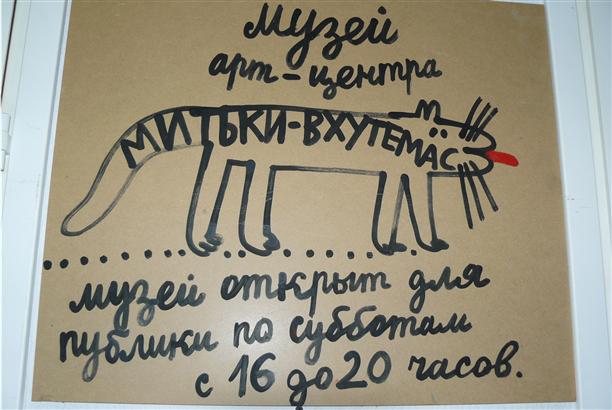 музей
арт-центра
МИТЬКИ-ВХУТЕМАС
музей открыт для
публики по субботам
с 16 до 20 часов.